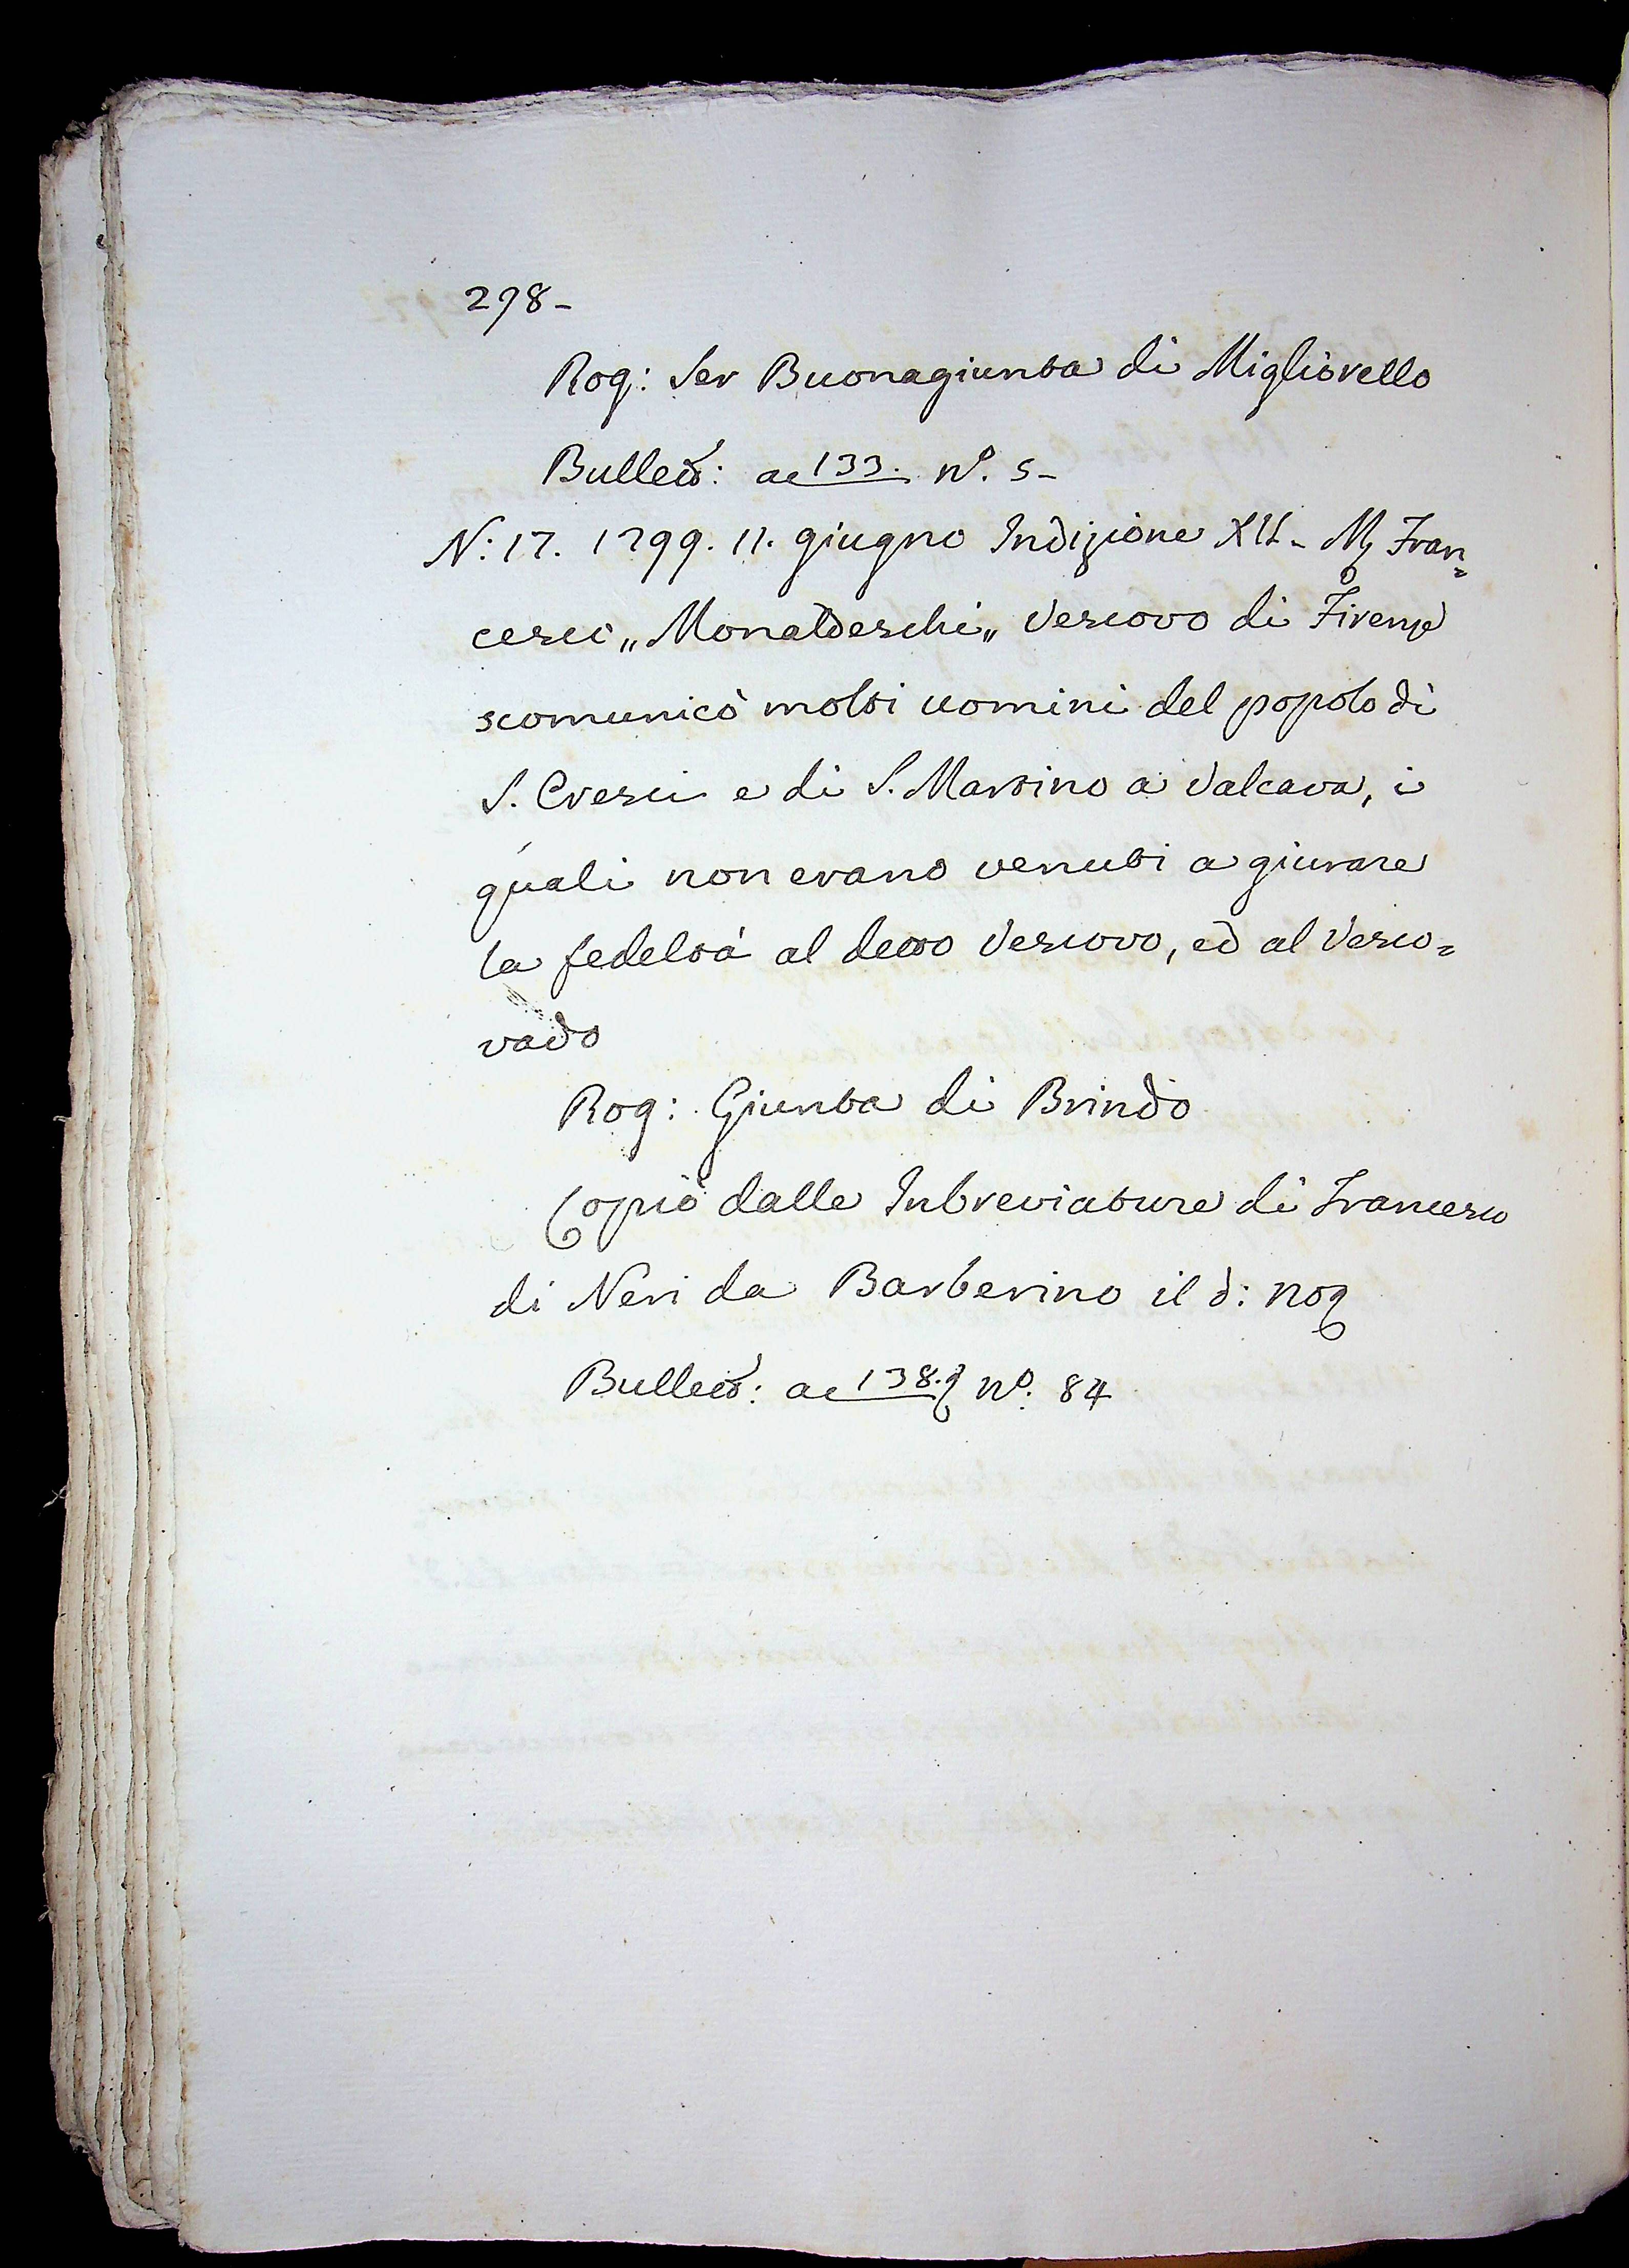 298-
Rog: Ser Buonagiunta di Migliorello
Bullett: ac 133. Nº. 5-
N: 17. 1299. 11. giugno Indizione XII- M. Fran=
cesco „Monaldeschi„ Vescovo di Firenze
scomunicò molti uomini del popolo di
S. Cresci e di S. Martino a Valcava, i
quali non erano venuti a giurare
la fedeltà al detto Vescovo, ed al Vesco=
vado
Rog: Giunta di Brindo
Copiò dalle Inbreviature di Francesco
di Neri da Barberino il d: Not
Bullett: ac 138. Nº. 84